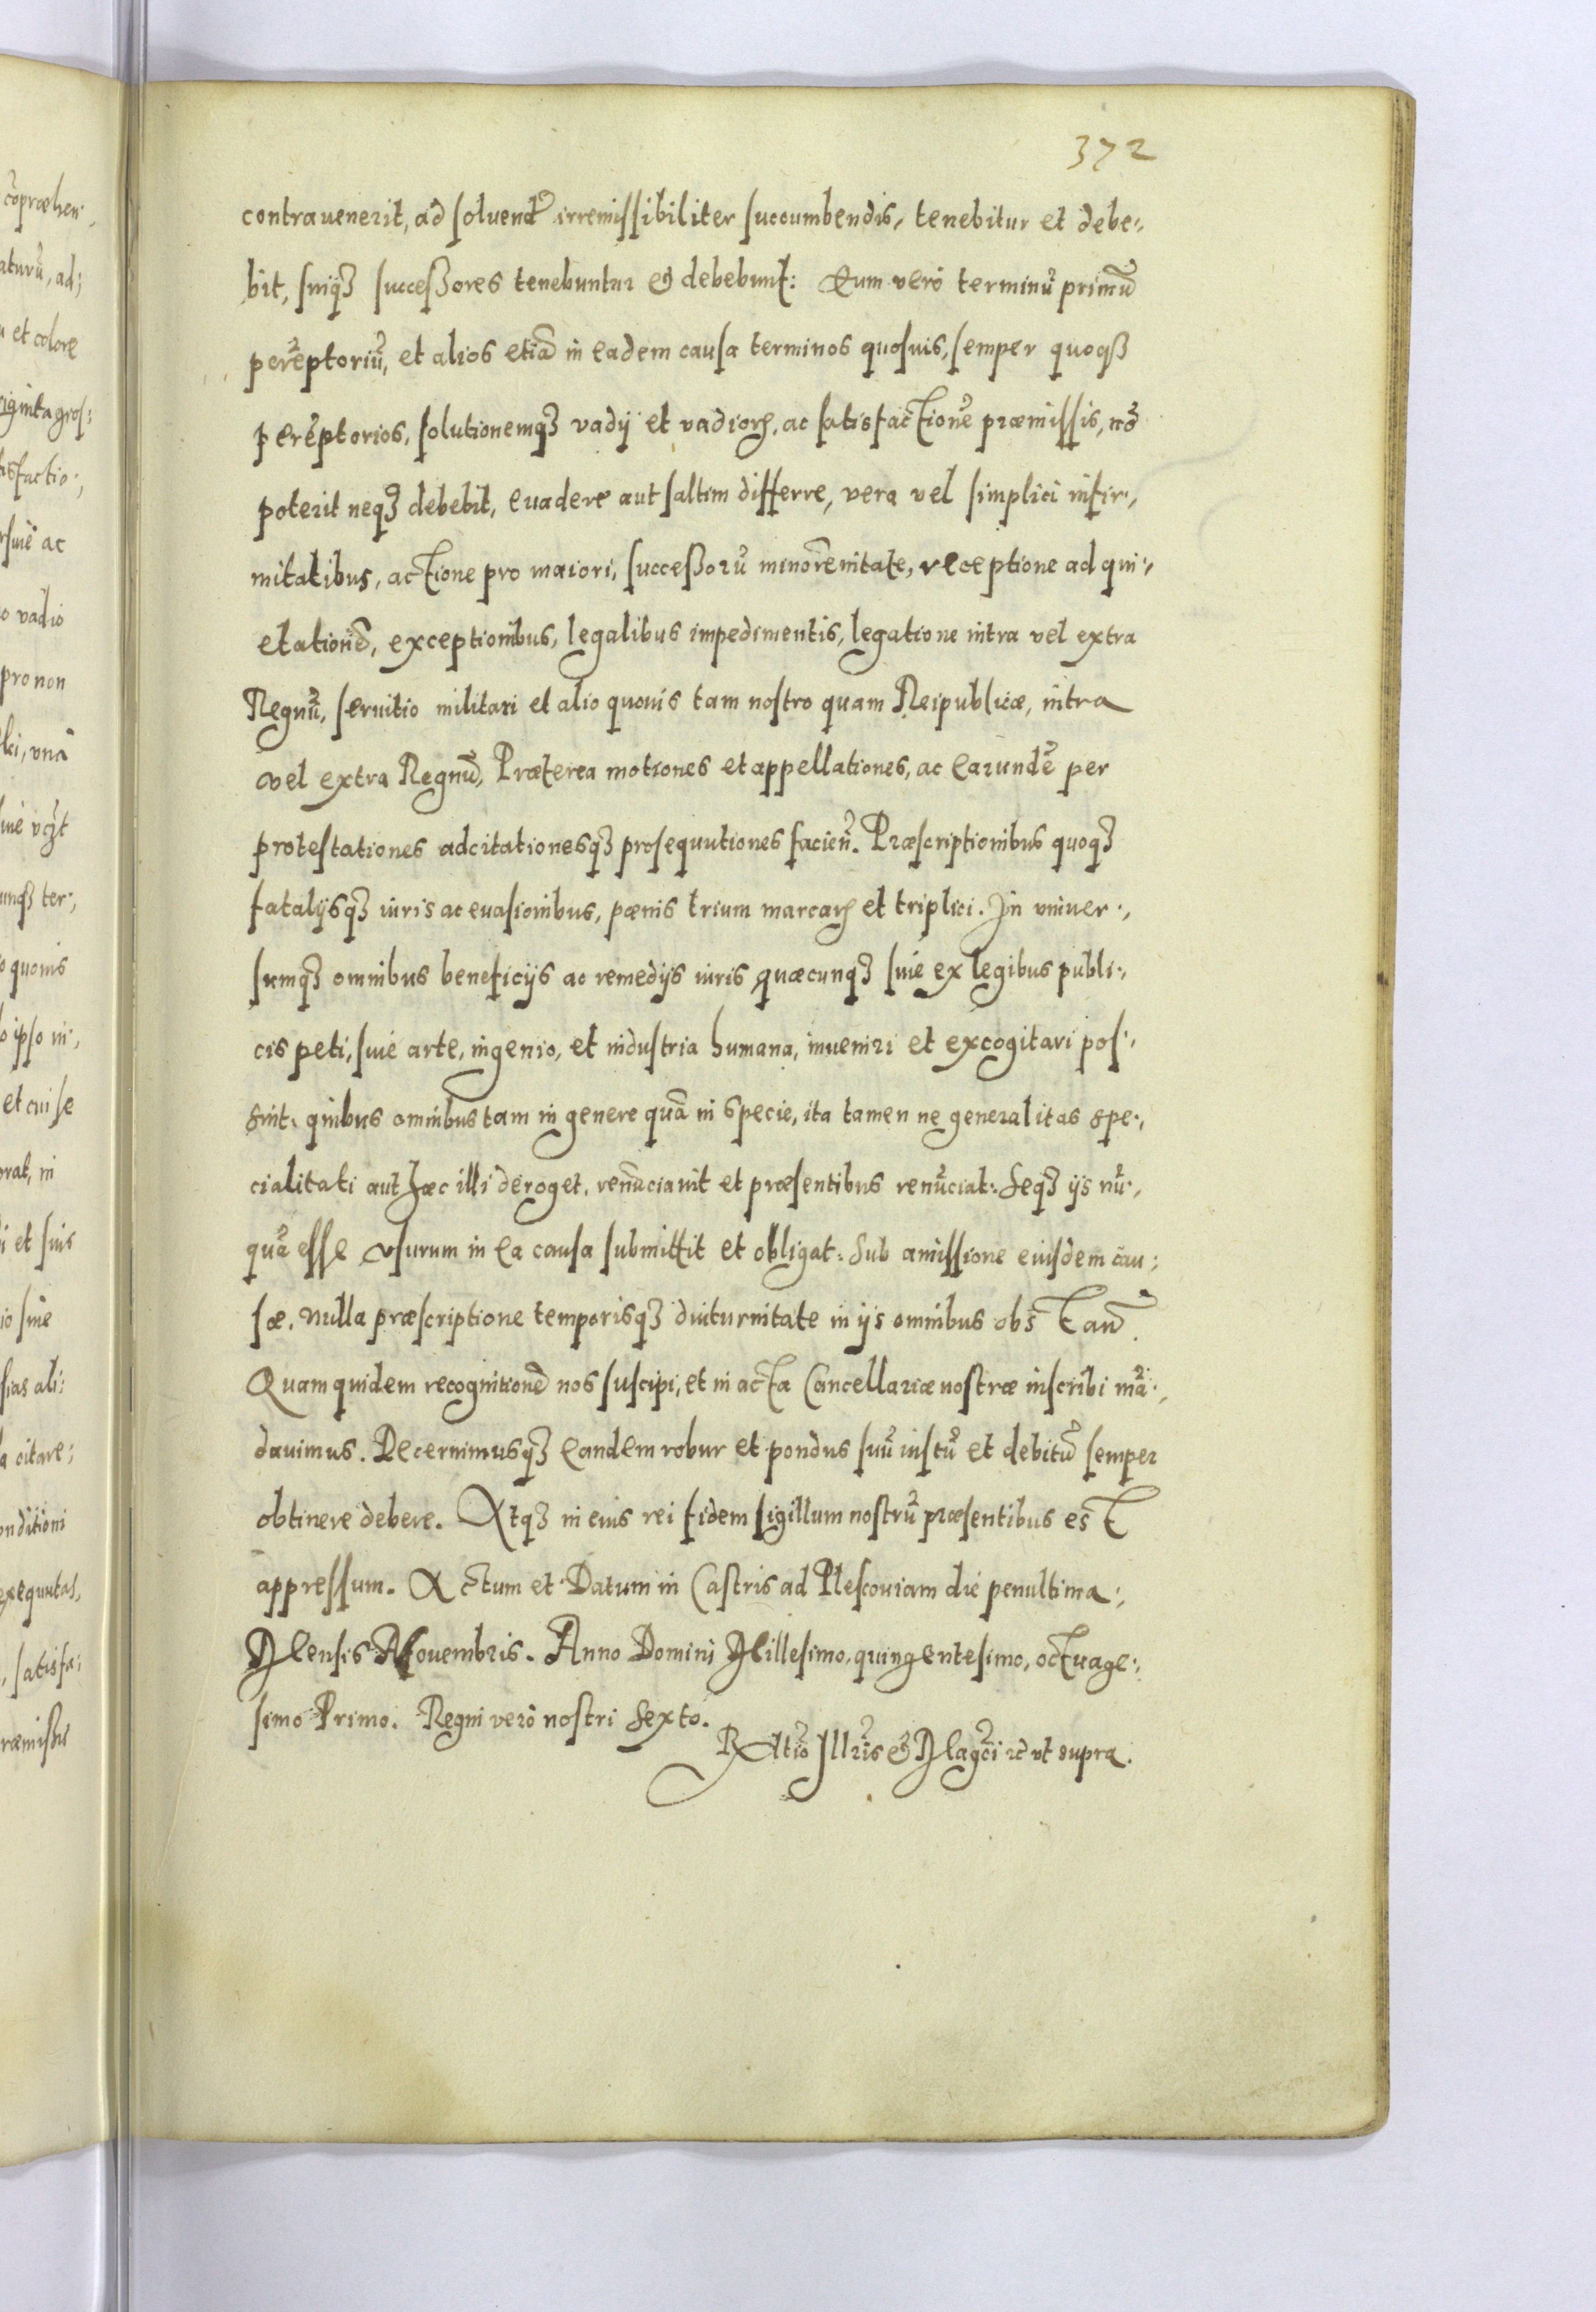 372
contrauenerit, ad soluend͂ irremissibiliter succumbendis, tenebitur et debe⸗
bit, suiqꝫ successores tenebuntur & debebunt: Eum verò terminũ primũ
perẽptoriũ, et alios etiã in eadem causa terminos quosuis, semper quoqꝫ
perẽptorios, solutionemqꝫ vadij et vadioꝝ, ac satisfactionẽ præmissis, nõ
poterit neqꝫ debebit, euadere aut saltim differre, vera vel simplici infir⸗
mitatibus, actione pro maiori, successorũ minorẽnitate, receptione ad qui⸗
etationẽ, exceptionibus, legalibus impedimentis, legatione intra vel extra
Regnũ, seruitio militari et alio quouis tam nostro quam Reipublicæ, intra
vel extra Regnũ, Præterea motiones et appellationes, ac earundẽ per
protestationes adcitationesqꝫ prosequutiones facień. Præscriptionibus quoqꝫ
fatalijsqꝫ iuris ac euasionibus, pœnis trium marcaꝝ et triplici. In vniuer⸗
sumqꝫ omnibus beneficijs ac remedijs iuris quæcunqꝫ siue ex legibus publi⸗
cis peti, siue arte, ingenio, et industria humana, inueniri et excogitari pos⸗
sint. quibus omnibus tam in genere quã in specie, ita tamen ne generalitas spe⸗
cialitati aut hæc illi deroget, renũciauit et præsentibus renũciat: Seqꝫ ijs nũ⸗
quã esse vsurum in ea causa submittit et obligat: Sub amissione eiusdem cau⸗
sæ. Nulla præscriptione temporisqꝫ diuturnitate in ijs omnibus obstań.
Quam quidem recognitionẽ nos suscipi, et in acta Cancellariæ nostræ inscribi mã⸗
dauimus. Decernimusqꝫ eandem robur et pondus suũ iustũ et debitũ semper
obtinere debere. Atqꝫ in eius rei fidem sigillum nostrũ præsentibus est
appressum. Actum et Datum in Castris ad Plescouiam die penultima
Mensis Nouembris. Anno Domini Millesimo, quingentesimo, octuage⸗
simo Primo. Regni verò nostri Sexto.
Rltio Illris & Magci ꝛc vt supra.